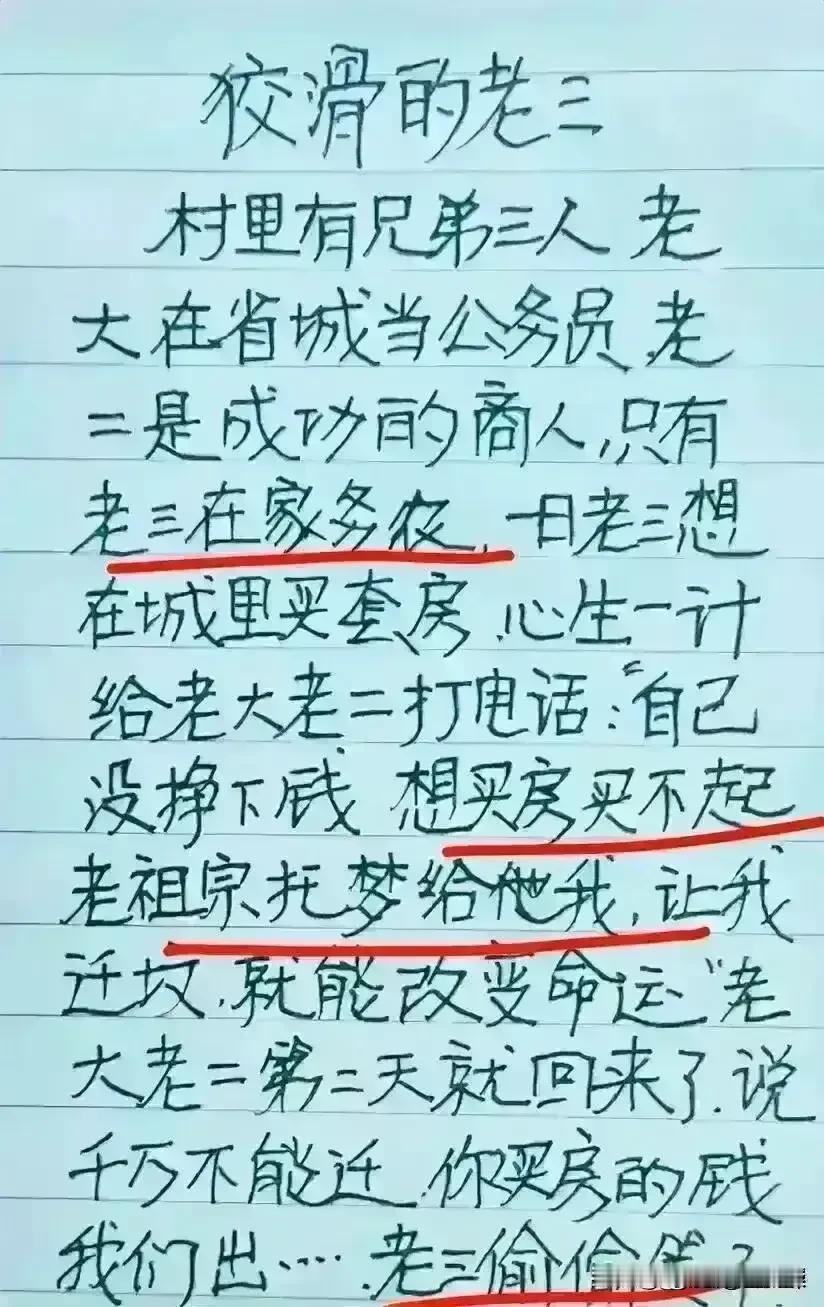 狡滑的老三
村里有兄弟三人 老
大在省城当公务员,老
二是成功的商人,只有
老三在家务农,一日老三想
在城里买套房,心生一计
给老大老二打电话:“自己
没挣下钱 想买房买不起
老祖宗托梦给他我,让我
迁坟,就能改变命运”老
大老二第二天就回来了.说
千万不能迁,你买房的钱
我们出…..老三偷偷